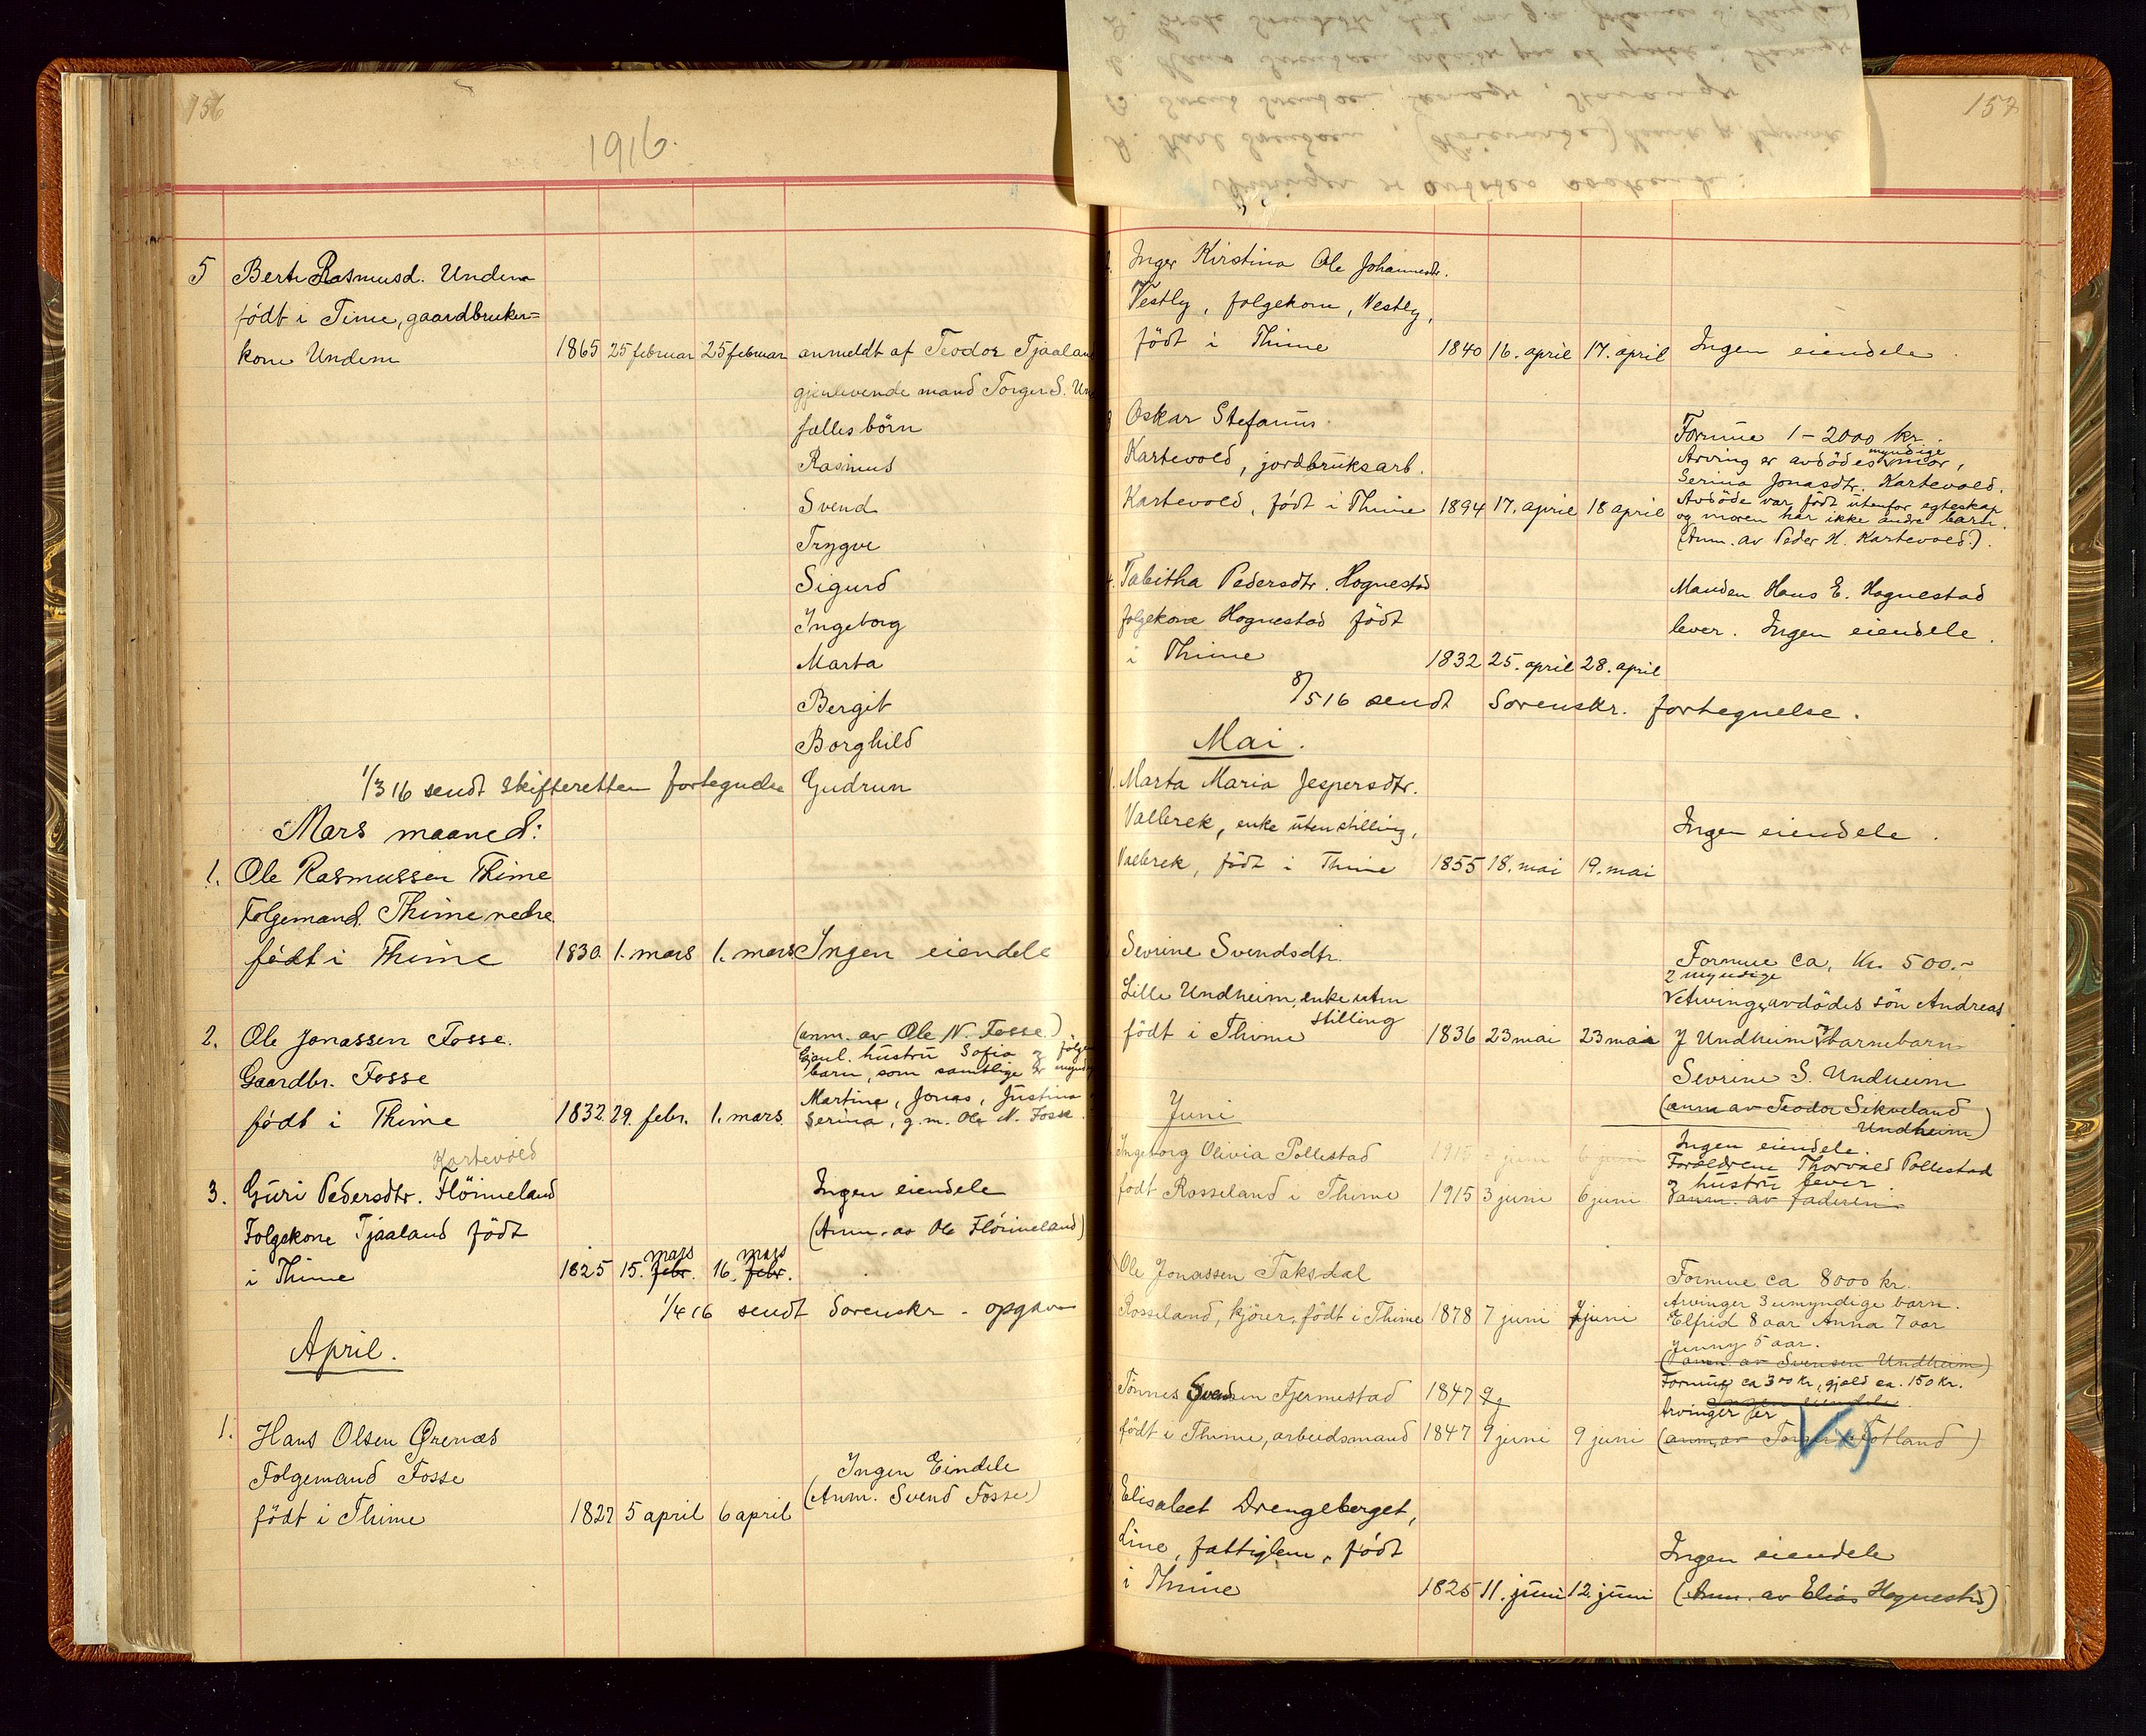 156
1916.
5 Berte Rasmusd. Undem
født i Time, gaardbruker=
kone Undem 1865 25 februar 25 februar anmeldt af Teodor Tjaaland
gjenlevende mand Torger S. Und
fælles börn
Rasmus
Svend
Trygve
Sigurd
Ingeborg
Marta
Bergit
Borghild
1/3 16 sendt skifteretten fortegnelse Gudrun
Mars maaned:
1. Ole Rasmussen Thime
Folgemand Thime nedre
født i Thime 1830. 1. mars 1. mars Ingen eiendele
2. Ole Jonassen Fosse. (anm. av Ole N. Fosse.)
Gjenl. hustru Sofia og følgende
Gaardbr. Fosse barn, som samtlige er myndige
Martine, Jonas, Justina
født i Thime 1832 29. febr. 1. mars. Serina, g.m. Ole N. Fosse.
Kartevold
3. Guri Pedersdtr. Flöimeland Ingen eiendele
Folgekone Tjaaland födt (Anm. av Ole Flöimeland)
mars mars
i Thime 1825 15. febr. 16. febr.
1/4 16 sendt Sorenskr. opgave
April.
1. Hans Olsen Ørenæs
Folgemand Fosse Ingen Eindele
(Anm. Svend Fosse)
födt i Thime 1827 5 april 6 april
157
Arvinger er avdödes søskende:
A. Karl Svendsen,
B. Svend Svendsen, Stavanger
C. Hans Svendsen, arbeider paa et apotek i Stavanger
Inger Kirstina Ole Johannesdr.
Vestly, folgekone, Vestly,
födt i Thime 1840 16. april 17. april Ingen eiendele.
Oskar Stefanus Formue 1-2000 kr.
myndige
Kartevold, jordbruksarb. Arving er avdödes mor,
Serina Jonasdtr. Kartevold.
Kartevold, födt i Thime 1894 17. april 18 april Avdöde var födt utenfor egteskap
og moren har ikke andre barn.
(Anm. av Peder H. Kartevold.).
4. Tabitha Pedersdtr. Hognestad Manden Hans E. Hognestad
folgekone Hognestad födt lever. Ingen eiendele.
i Thime 1832 25. april 28. april
8/5 16 sendt Sorenskr. fortegnelse.
Mai.
1. Marta Maria Jespersdtr.
Valbrek, enke uten stilling, Ingen eiendele.
Valbrek, födt i Thime 1855 18. mai 19. mai
Sevrine Svendsdtr. Formue ca. Kr. 500.-
2 myndige
Lille Undheim, enke uten Arvinge, avdödes sön Andreas
stilling
födt i Thime 1836 23 mai 23 mai J Undheim og barnebarn
Sevrine S. Undheim
(anm av Teodor Sikveland
Undheim)
Juni
Ingeborg Olivia Pollestad Ingen eiendele.
Forældrene Thorvald Pollestad
og hustru lever.
födt Rosseland i Thime 1915 3 juni 6 juni anm. av faderen
Ole Jonassen Taksdal Formue ca 8000 kr.
Arvinger 3 umyndige barn.
Rosseland, kjörer, födt i Thime 1878 7 juni 7 juni Elfrid 8 aar Anna 7 aar
Jenny 5 aar.
(anm. av Svensen Undheim)
Tönnes Svendsen Fjermestad 1847 9 j Formue ca 300 kr, gjæld ca. 150 kr.
Ingen eiendele.
Arvinger
født i Thime, arbeidsmand 1847 9 juni 9 juni (anm. av Torger Fotland)
Vx)
Elisabet Drengeberget,
Line, fattiglem, födt Ingen eiendele
i Thime 1825 11. juni 12. juni (Anm. av Elias Hognestad)